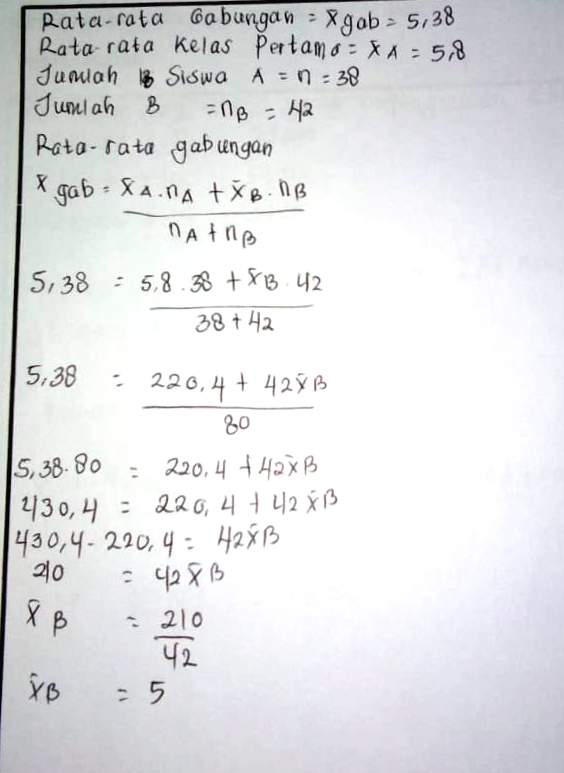 Rata-rata Gabungan = x̄gab = 5,38
Rata-rata Kelas Pertama = x̄A = 5,8
Jumlah Siswa A = n = 38
Jumlah B = nB = 42
Rata-rata gabungan
x̄ gab = x̄A.nA + x̄B.nB
nA + nB
5,38 = 5,8 . 38 + x̄B . 42
38 + 42
5,38 = 220,4 + 42x̄B
80
5,38.80 = 220,4 + 42x̄B
430,4 = 220,4 + 42x̄B
430,4 - 220,4 = 42x̄B
210 = 42x̄B
x̄B = 210
42
x̄B = 5